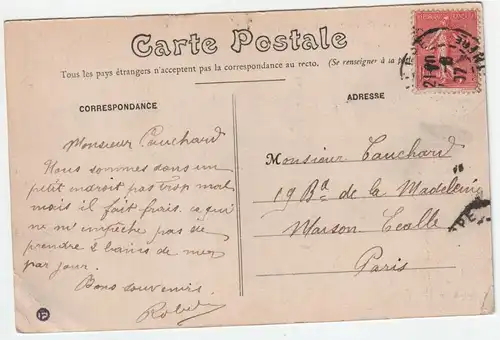 Carte Postale
Tous les pays étrangers n'acceptent pas la correspondance au recto. (Se renseigner à la
CORRESPONDANCE
ADRESSE
Monsieur Cauchard
Nous sommes dans un
petit endroit pas trop mal
mais il fait frais. ce qui
ne m'empêche pas de
prendre 2 bains de mer
par jour.
Bons souvenirs.
Robert
Monsieur Cauchard
19 Bd de la Madeleine
Maison
Paris